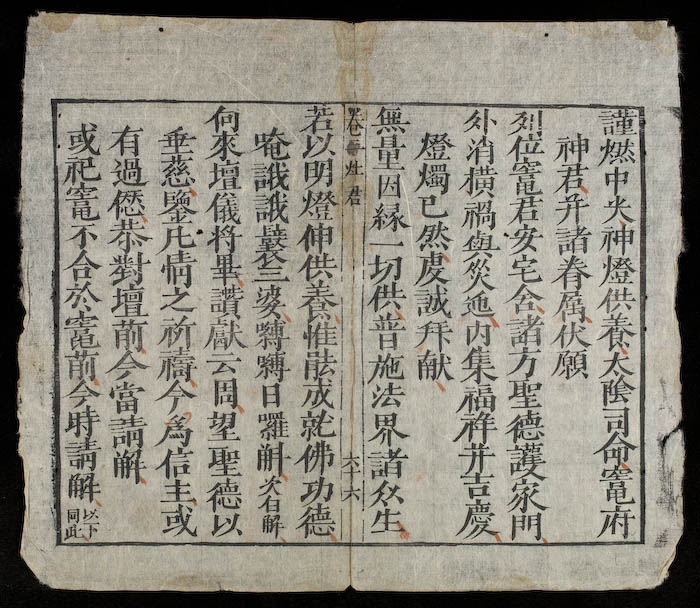 謹燃中央神燈供養太陰司命竈府
神君并諸眷屬伏願
列位竈君安宅舍諸方聖德護家門
外消橫禍與災迍內集福祥并吉慶
燈燭已然虔誠拜献
無量因緣一切供普施法界諸众生
卷 灶君 六十六
若以明燈伸供養惟䏻成就佛功德
唵誐誐曩三婆嚩嚩日囉斛次召解
何來壇儀將畢讚獻云周望聖德以
垂慈鑒凡情之祈禱今爲信主或
有過愆恭對壇前今當請解
或祀竈不合於竈前今時請解以下同此